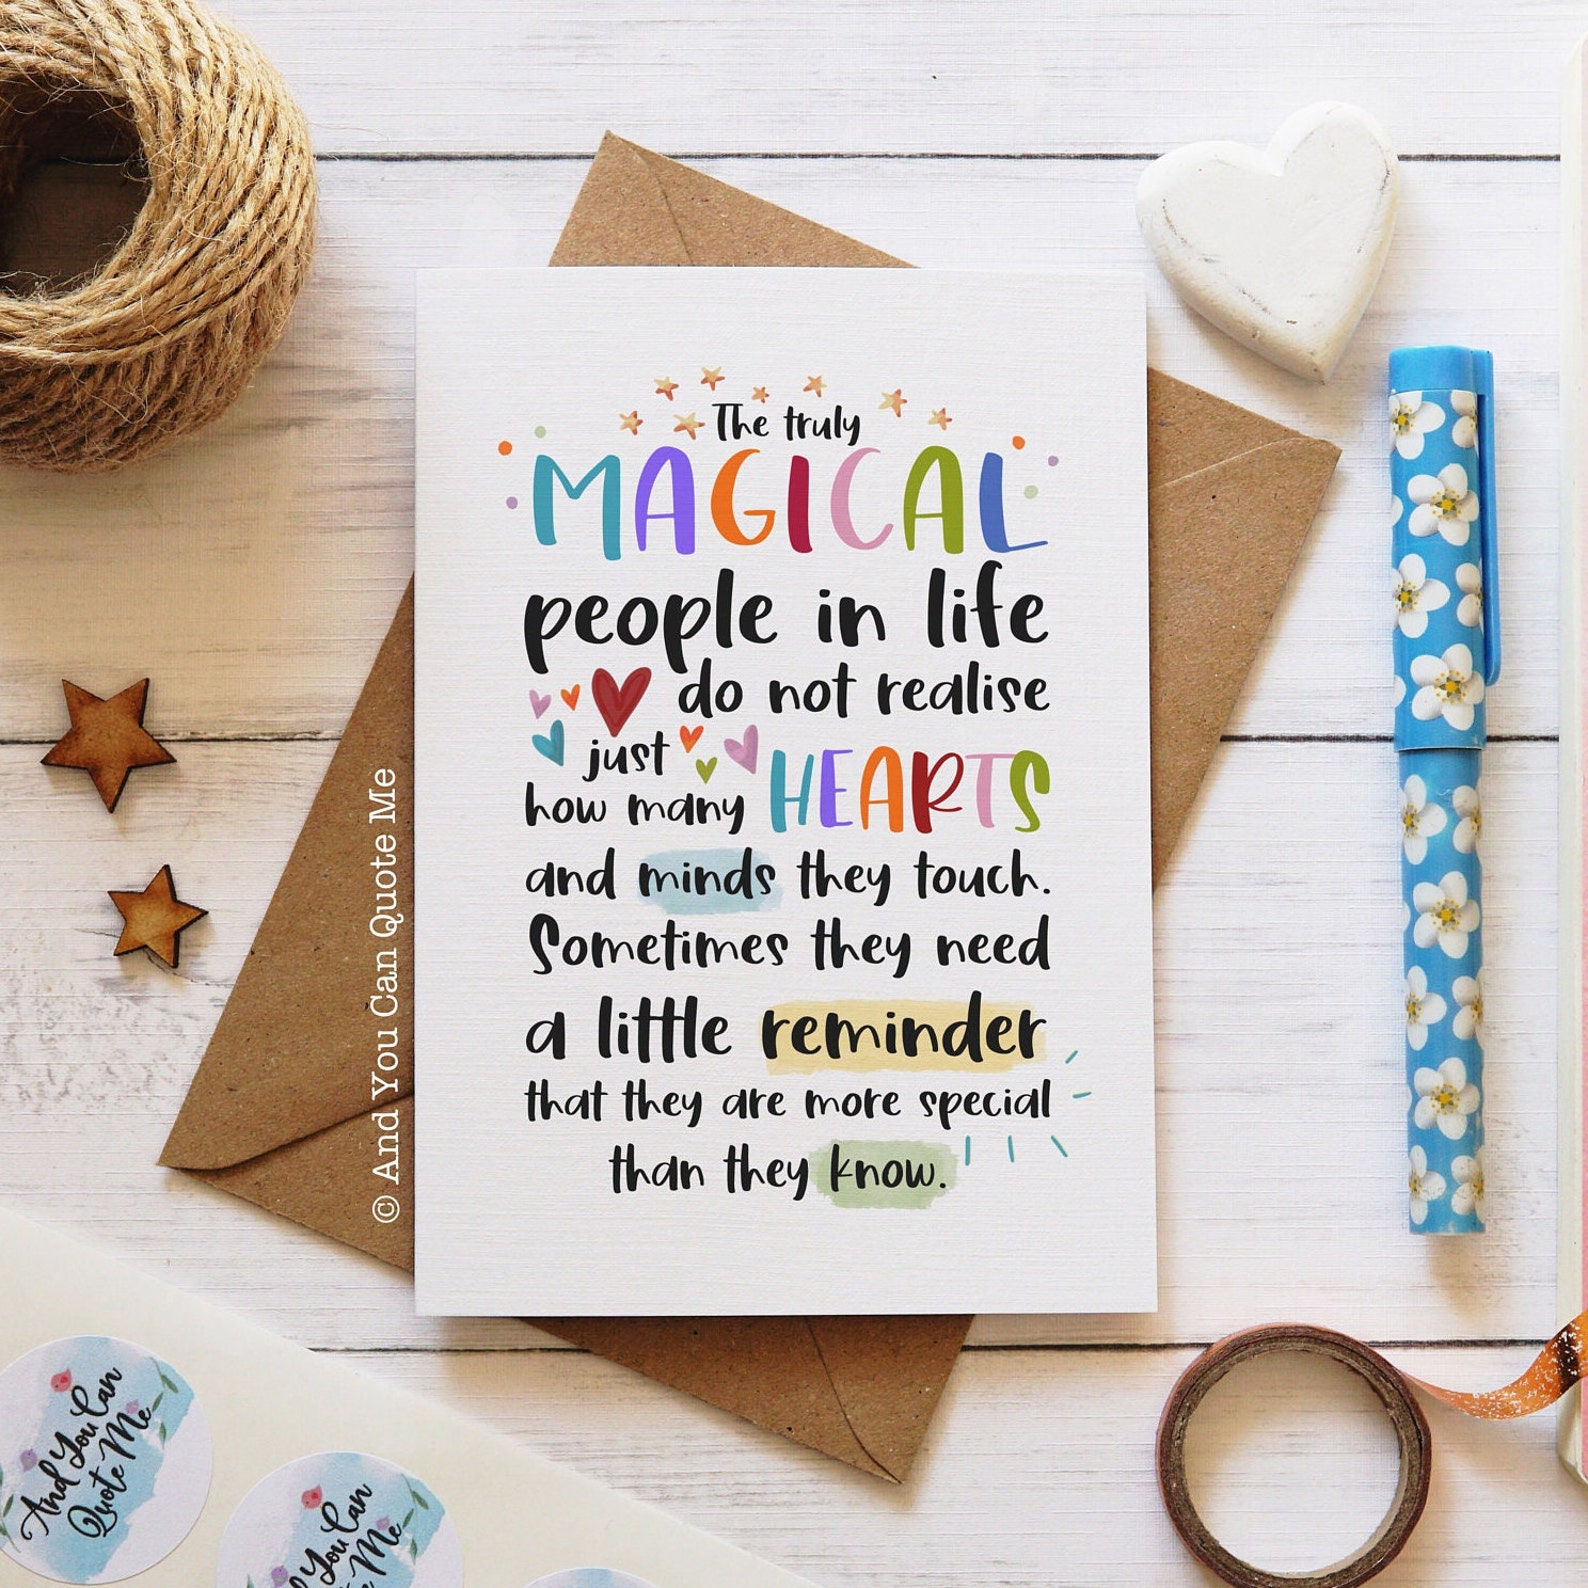 The truly
MAGICAL
people in life
do not realise
just
how many HEARTS
and minds they touch.
Sometimes they need
a little reminder
that they are more special
than they know.
© And You Can Quote Me
And You Can
Quote Me
You Can
Me